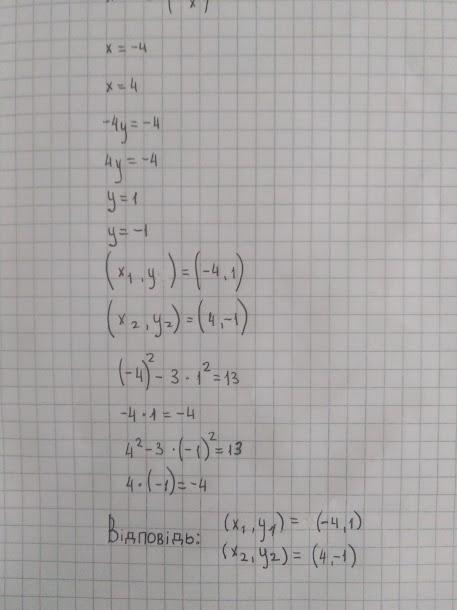 x = -4
x = 4
-4y = -4
4y = -4
y = 1
y = -1
(x₁, y ) = (-4, 1)
(x₂, y₂) = (4, -1)
(-4)² - 3 · 1² = 13
-4 · 1 = -4
4² - 3 · (-1)² = 13
4 · (-1) = -4
Відповідь: (x₁, y₁) = (-4, 1)
(x₂, y₂) = (4, -1)